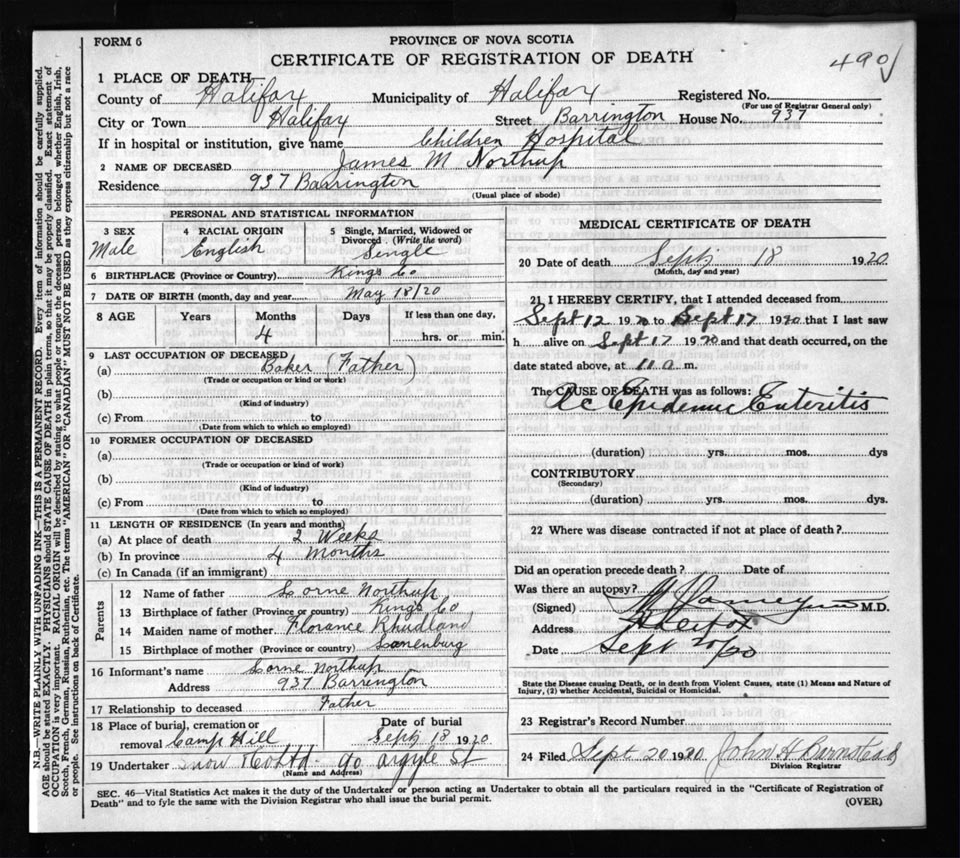 FORM 6
PROVINCE OF NOVA SCOTIA
CERTIFICATE OF REGISTRATION OF DEATH
490
1 PLACE OF DEATH
County of Halifax Municipality of Halifax Registered No.
(For use of Registrar General only)
City or Town Halifax Street Barrington House No. 937
If in hospital or institution, give name Children Hospital
2 NAME OF DECEASED James M Northup
Residence 937 Barrington
(Usual place of abode)
PERSONAL AND STATISTICAL INFORMATION
3 SEX 4 RACIAL ORIGIN 5 Single, Married, Widowed or
Divorced. (Write the word)
Male English Single
6 BIRTHPLACE (Province or Country) Kings Co
7 DATE OF BIRTH (month, day and year) May 18/20
8 AGE Years Months Days If less than one day,
4 hrs. or min.
9 LAST OCCUPATION OF DECEASED
(a) Baker (Father)
(Trade or occupation or kind or work)
(b)
(Kind of industry)
(c) From to
(Date from which to which so employed)
10 FORMER OCCUPATION OF DECEASED
(a)
(Trade or occupation or kind of work)
(b)
(Kind of industry)
(c) From to
(Date from which to which so employed)
11 LENGTH OF RESIDENCE (In years and months)
(a) At place of death 2 Weeks
(b) In province 4 Months
(c) In Canada (if an immigrant)
Parents
12 Name of father Lorne Northup
13 Birthplace of father (Province or country) Kings Co
14 Maiden name of mother Florance Rhudland
15 Birthplace of mother (Province or country) Lunenburg
16 Informant's name Lorne Northup
Address 937 Barrington
17 Relationship to deceased Father
18 Place of burial, cremation or Date of burial
removal Camp Hill Sept 18 1920
19 Undertaker Snow & Co Ltd. 90 Argyle St
(Name and Address)
MEDICAL CERTIFICATE OF DEATH
20 Date of death Sept 18 1920
(Month, day and year)
21 I HEREBY CERTIFY, that I attended deceased from
Sept 12 1920 to Sept 17 1920 that I last saw
h alive on Sept 17 1920 and that death occurred, on the
date stated above, at 11 a m.
The CAUSE OF DEATH was as follows:
Ac Epidemic Enteritis
(duration) yrs. mos. dys
CONTRIBUTORY
(Secondary)
(duration) yrs. mos. dys.
22 Where was disease contracted if not at place of death?
Did an operation precede death? Date of
Was there an autopsy?
(Signed) M.D.
Address Halifax
Date Sept 20/20
State the Disease causing Death, or in death from Violent Causes, state (1) Means and Nature of
Injury, (2) whether Accidental, Suicidal or Homicidal.
23 Registrar's Record Number
24 Filed Sept 20 1920 John H Barnstead
Division Registrar
SEC. 46—Vital Statistics Act makes it the duty of the Undertaker or person acting as Undertaker to obtain all the particulars required in the "Certificate of Registration of
Death" and to fyle the same with the Division Registrar who shall issue the burial permit.
(OVER)
N.B.—WRITE PLAINLY WITH UNFADING INK—THIS IS A PERMANENT RECORD. Every item of information should be carefully supplied.
AGE should be stated EXACTLY. PHYSICIANS should STATE CAUSE OF DEATH in plain terms, so that it may be properly classified. Exact statement of
OCCUPATION is very important. RACIAL ORIGIN will be described by stating to what people or tongue the deceased person belonged, whether English, Irish,
Scotch, French, German, Russian, Ruthenian, etc. The terms "AMERICAN" OR "CANADIAN" MUST NOT BE USED as they express citizenship but not a race
or people. See instructions on back of Certificate.